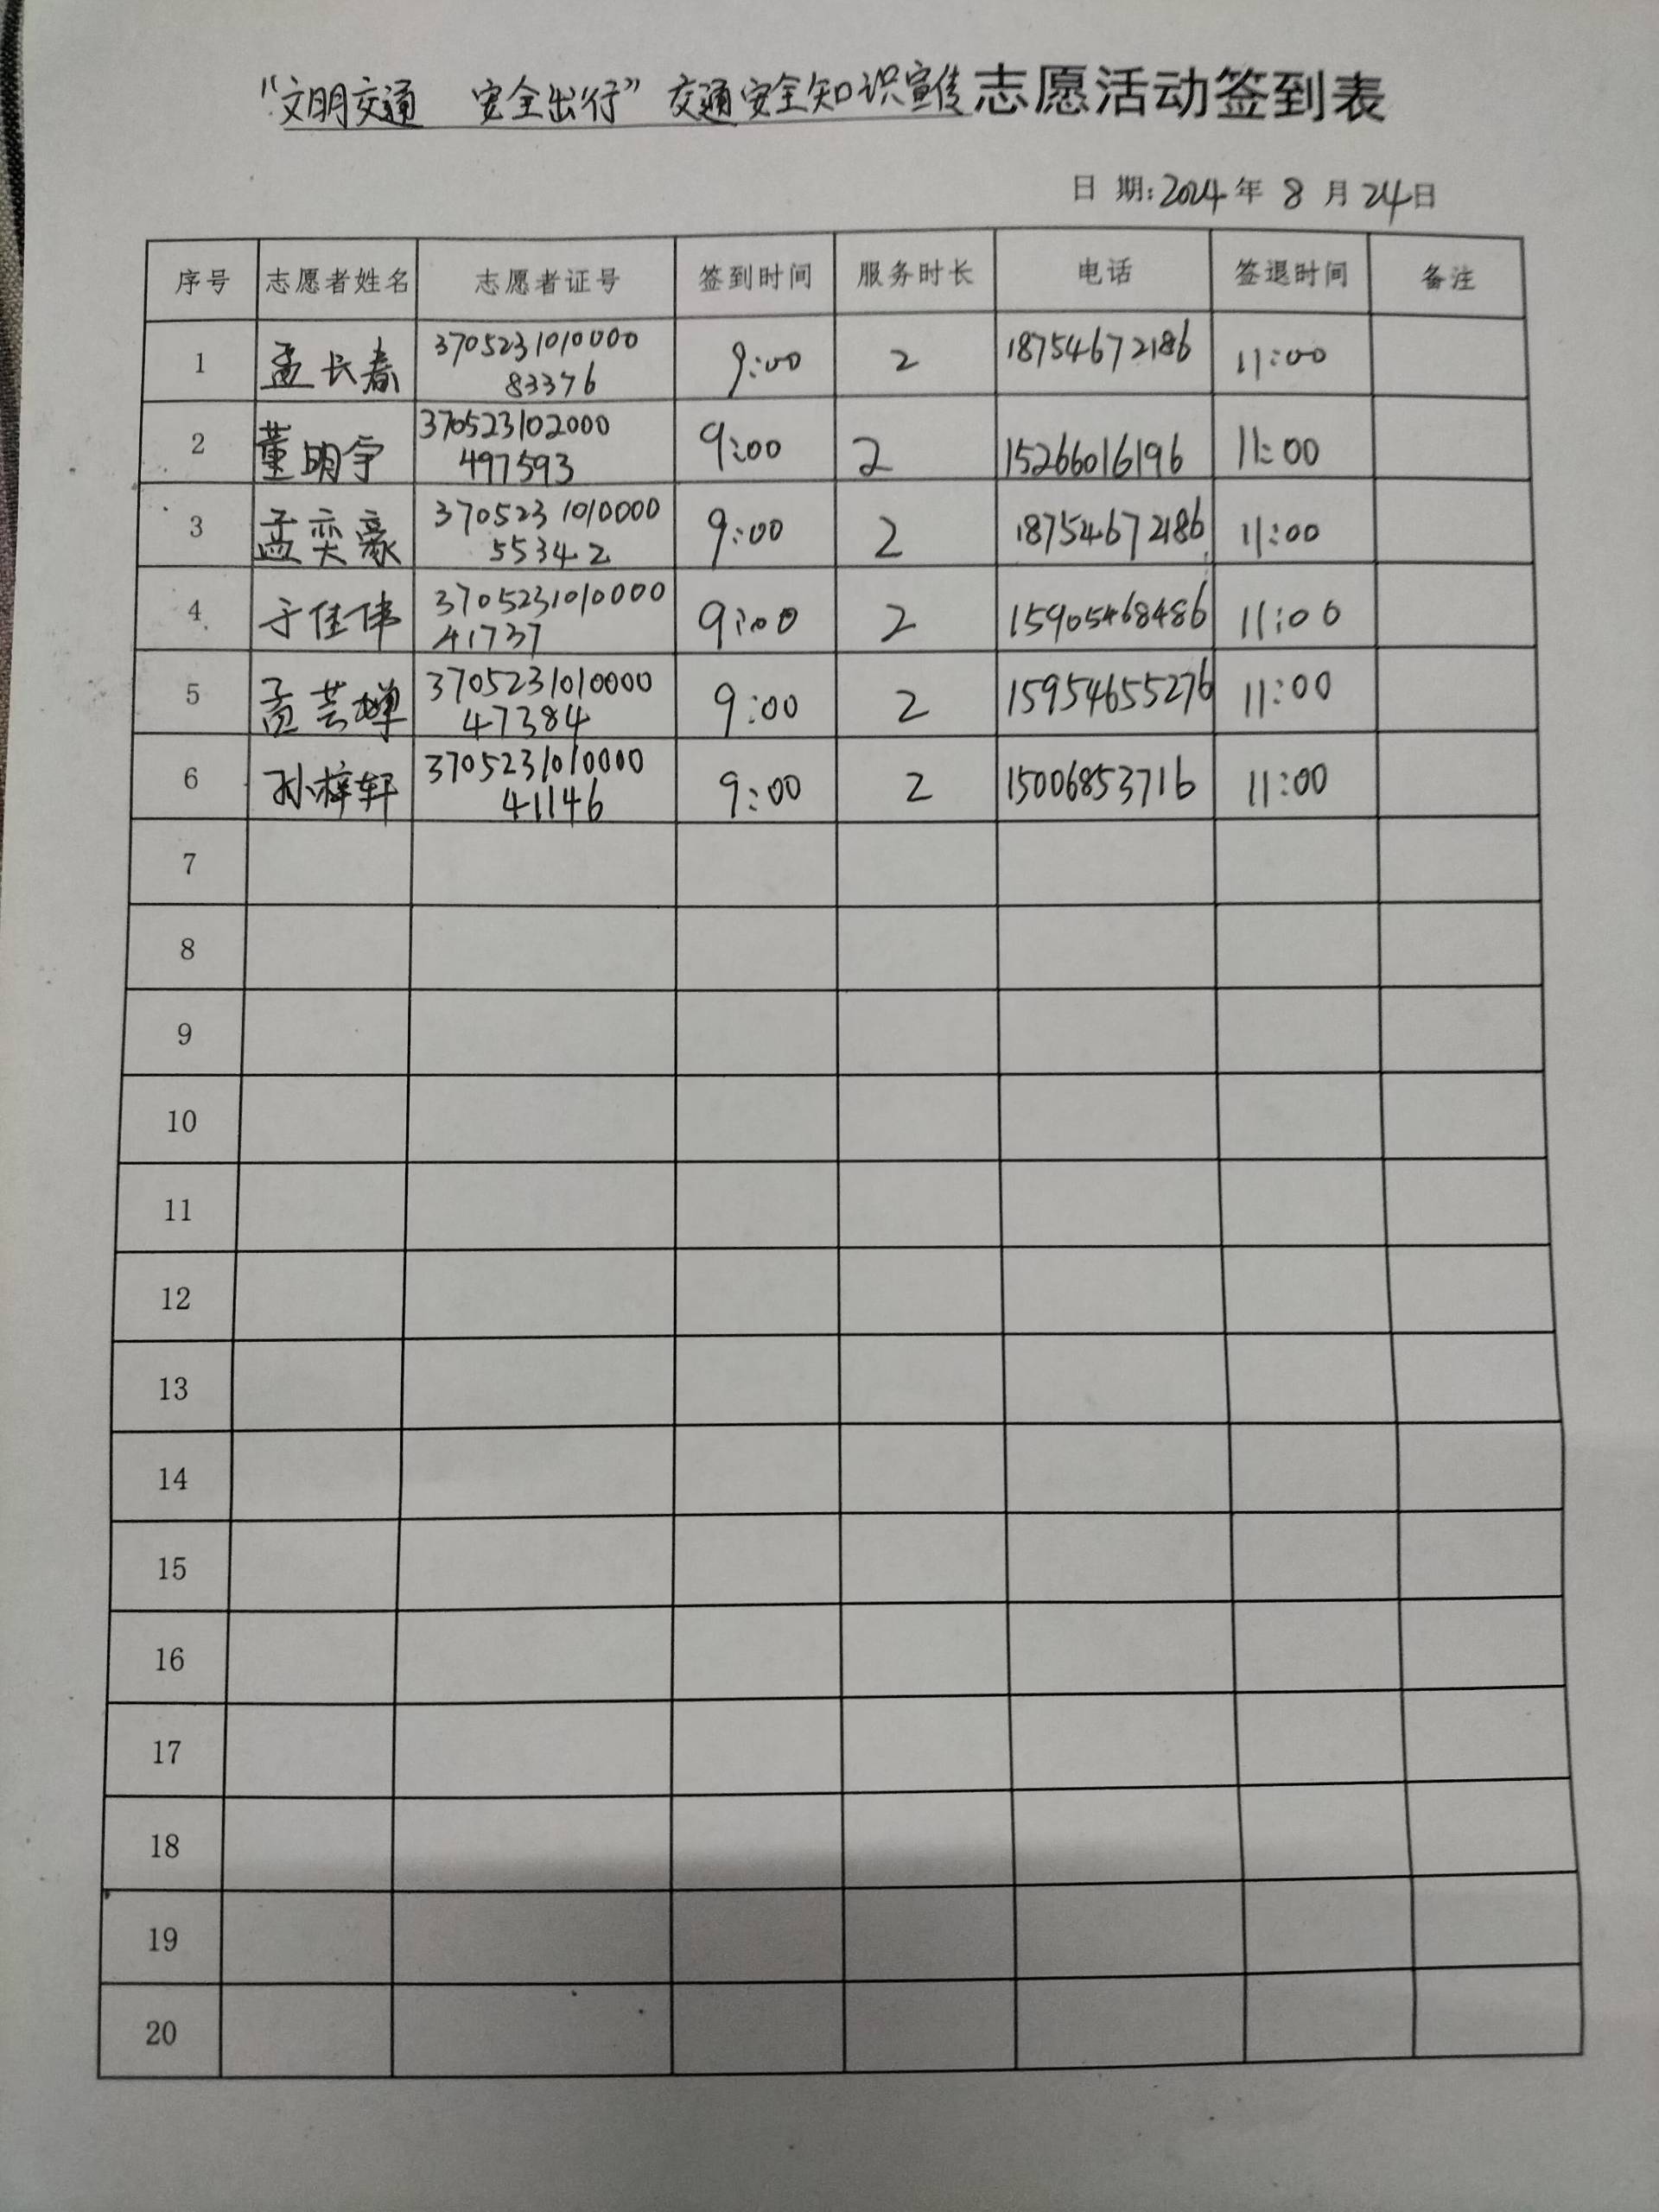 “文明交通 安全出行”交通安全知识宣传志愿活动签到表
日 期: 2024 年 8 月 24 日
序号 志愿者姓名 志愿者证号 签到时间 服务时长 电话 签退时间 备注
1 孟长春 3705231010000 83376 9:00 2 18754672186 11:00
2 董明宇 370523102000 497593 9:00 2 15266016196 11:00
3 孟奕豪 3705231010000 55342 9:00 2 18754672186 11:00
4 于佳伟 3705231010000 41737 9:00 2 15905468486 11:00
5 孟芸婵 3705231010000 47384 9:00 2 15954655276 11:00
6 孙梓轩 3705231010000 41146 9:00 2 15006853716 11:00
7
8
9
10
11
12
13
14
15
16
17
18
19
20